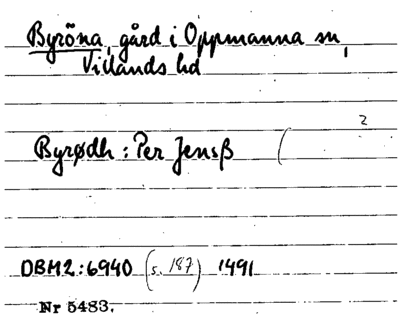 Byröna, gård i Oppmanna sn,
Villands hd
2
Byrødh : Per Jensß (
DBM2:6940 (s. 187) 1491
Nr 5483.